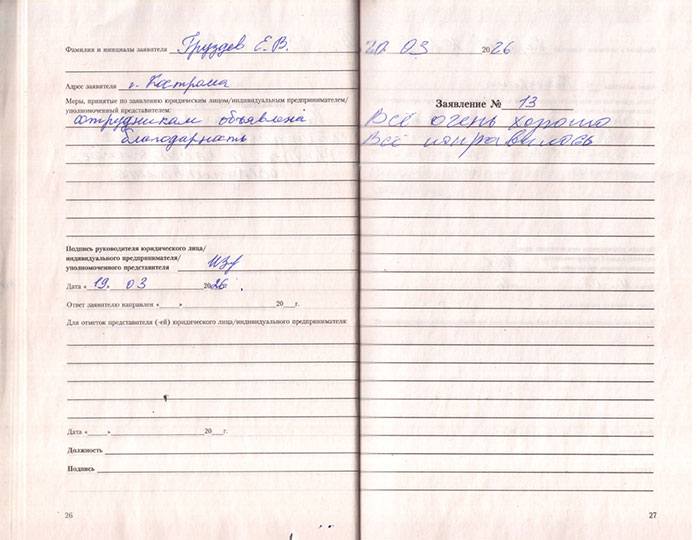 Фамилия и инициалы заявителя Груздев Е.В.
Адрес заявителя г. Кострома
Меры, принятые по заявлению юридическим лицом/индивидуальным предпринимателем/
уполномоченный представителем:
сотрудникам объявлена
благодарность
Подпись руководителя юридического лица/
индивидуального предпринимателя/
уполномоченного представителя
Дата « 19. 03 2026 .
Ответ заявителю направлен «____»____ 20___г.
Для отметок представителя (-ей) юридического лица/индивидуального предпринимателя:
Дата «____»____ 20___г.
Должность
Подпись
26
20 03 2026
Заявление № 13
Всё очень хорошо
Всё понравилось
27